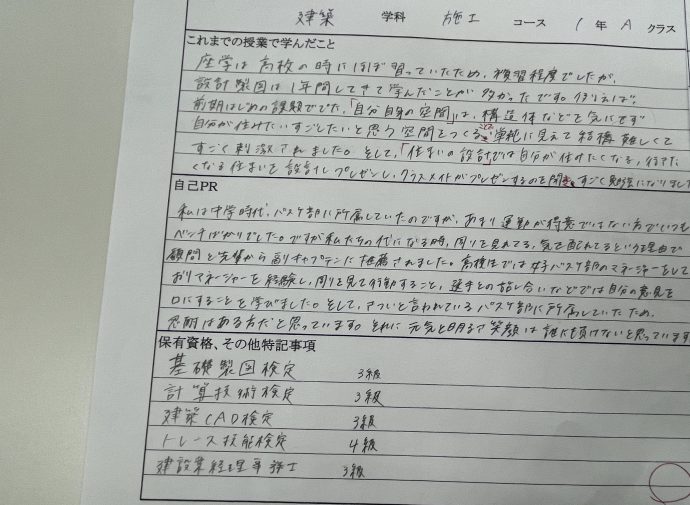 建築 学科 施工 コース 1 年 A クラス
これまでの授業で学んだこと
座学は高校の時にほぼ習っていたため、復習程度でしたが、
設計製図は1年間してきて学んだことが多かったです。例えば、
前期はじめの課題ででた、「自分自身の空間」は、構造体などを気にせず
自分が住みたいすごしたいと思う空間をつくる、単純に見えて結構難しくて
すごく刺激されました。そして、「住まいの設計」では自分が住みたくなる、行きた
くなる住まいを設計しプレゼンし、クラスメイトがプレゼンするのを聞き、すごく勉強になりました
自己PR
私は中学時代、バスケ部に所属していたのですが、あまり運動が得意ではない方でいつも
ベンチばかりでした。ですが私たちの代になる時、周りを見れてる、気を配れてるという理由で
顧問と先輩から副キャプテンに推薦されました。高校では女子バスケ部のマネージャーをして
おりマネージャーを経験し、周りを見て行動すること、選手との話し合いなどでは自分の意見を
口にすることを学びました。そして、きついと言われているバスケ部に所属していたため、
忍耐はある方だと思っています。それに元気と明るさ笑顔は誰にも負けないと思っています
保有資格、その他特記事項
基礎製図検定 3級
計算技術検定 3級
建築CAD検定 3級
トレース技能検定 4級
建設業経理事務士 3級